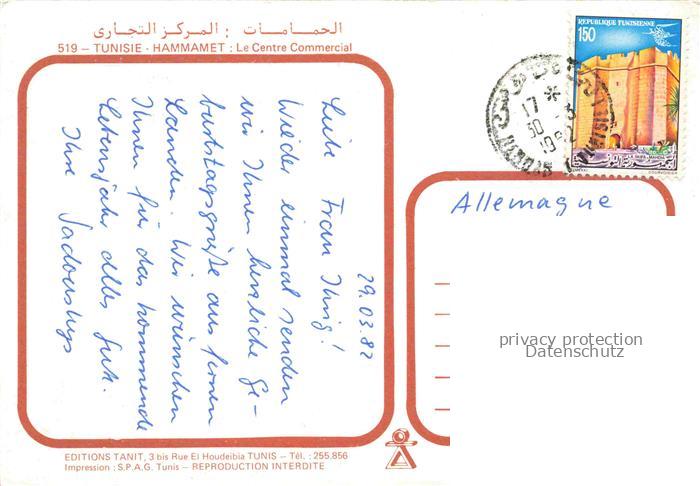 الحمامات : المركز التجاري
519 – TUNISIE - HAMMAMET : Le Centre Commercial
REPUBLIQUE TUNISIENNE
150
17 *
30 - 3
1982
29.03.82
Liebe Frau Ihrig!
Wieder einmal senden
wir Ihnen herzliche Ge-
burtstagsgrüße aus fernen
Landen. Wir wünschen
Ihnen für das kommende
Lebensjahr alles Gute.
Ihre Sadowskys
Allemagne
privacy protection
Datenschutz
EDITIONS TANIT, 3 bis Rue El Houdeibia TUNIS – Tél. : 255.856
Impression : S.P.A.G. Tunis – REPRODUCTION INTERDITE